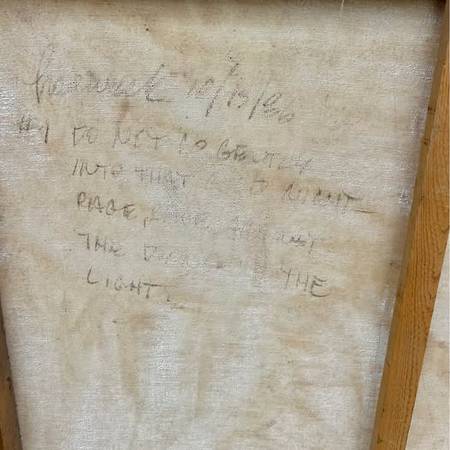 10/15/80
#1 DO NOT GO GENTLY
INTO THAT GOOD NIGHT
RAGE, RAGE, AGAINST
THE THE
LIGHT.